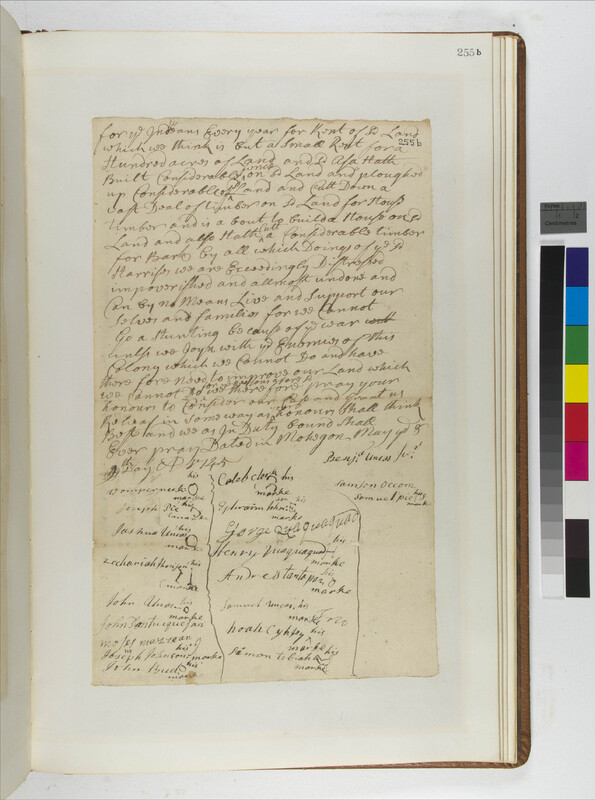 255b
for ye Indians Every year for Rent of sd Land
which we think is but a Small Rent for a
255b
Hundred acres of Land and sd Asa Hath
Built Considerable fence on sd Land and ploughed
up Considerable of Land and Cutt Down a
Vast Deal of timber on sd Land for House
timber and is about to build a House on sd
Land and allso Hath Cutt a Considerable timber
for Bark by all which Doings of ye sd
Harrises we are Exceedingly Distressed
impoverished and allmost undone and
Can by no Means Live and Support our
Selves and families for we Cannot
Go a Hunting because of ye war
unless we Joyn with ye Enemies of this
Colony which we Cannot Do and have
therefore Need to improve our Land which
we Cannot Do we therefore pray your
honours to Consider our Case and Grant us
Releaf in Some way as your honours Shall think
Best and we as in Duty bound Shall
Ever pray Dated in Mohegon May ye 8
th Day AD 1745
Benja Uncas
Samson Occom
Samuel his
marke
his
marke
Joseph his
marke
Joshua Uncas his
marke
Zechariah his
marke
John Uncas his
marke
John
Moses
Joseph Johnson his marke
John his
marke
Caleb his
marke
Ephraim his
marke
George
Henry Quaquaquid his
marke
Andre his
marke
Samuel Uncas his
marke
Noah his
marke
Simon his
marke